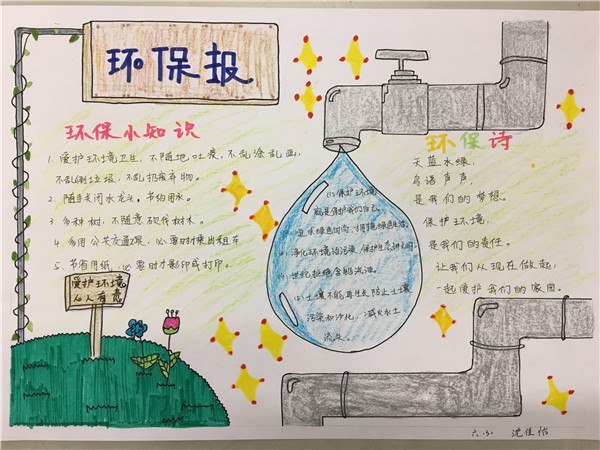 环保报
环保小知识
1. 爱护环境卫生，不随地吐痰，不乱涂乱画，
不乱倒垃圾，不乱扔废弃物。
2. 随手关闭水龙头，节约用水。
3. 多种树，不随意砍伐树木。
4. 多用公共交通工具，必要时乘出租车
5. 节省用纸，必要时才影印或打印。
爱护环境
人人有责
(1) 保护环境
就是保护我们自己。
追求绿色时尚，拥抱绿色生活。
(3) 净化环境治污染，保护生态讲文明。
世纪拒绝含铅汽油。
(5) 土壤不能再生长，防止土壤
污染和沙化，减少水土
流失。
环保诗
天蓝水绿，
鸟语声声，
是我们的梦想。
保护环境，
是我们的责任。
让我们从现在做起，
一起爱护我们的家园。
六.(5) 沈佳怡